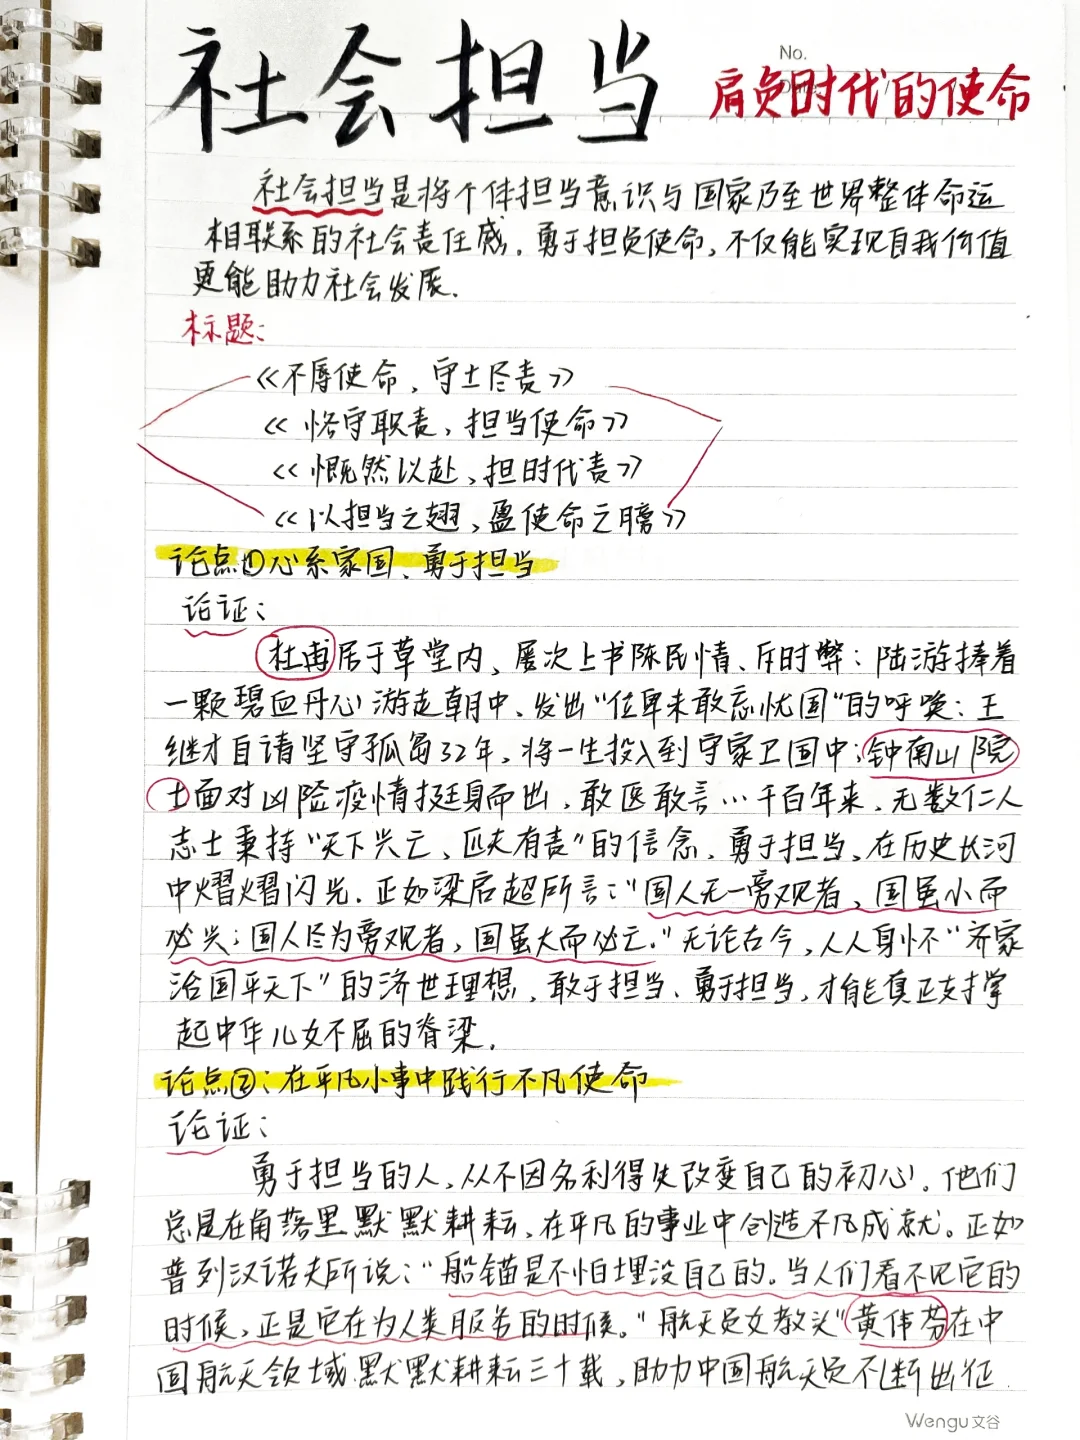 社会担当
No.
肩负时代的使命
社会担当是将个体担当意识与国家乃至世界整体命运
相联系的社会责任感.勇于担负使命,不仅能实现自我价值
更能助力社会发展.
标题:
《不辱使命、守土尽责》
《恪守职责、担当使命》
《慨然以赴、担时代责》
《以担当之翅、盈使命之膀》
论点①心系家国、勇于担当
论证:
杜甫居于草堂内、屡次上书陈民情、斥时弊;陆游捧着
一颗碧血丹心游走朝中、发出“位卑未敢忘忧国”的呼唤;王
继才自请坚守孤岛32年,将一生投入到守家卫国中;钟南山院
士面对凶险疫情挺身而出,敢医敢言…千百年来,无数仁人
志士秉持“天下兴亡、匹夫有责”的信念,勇于担当,在历史长河
中熠熠闪光.正如梁启超所言:“国人无一旁观者,国虽小而
必兴;国人尽为旁观者,国虽大而必亡.”无论古今,人人身怀“齐家
治国平天下”的济世理想,敢于担当、勇于担当,才能真正支撑
起中华儿女不屈的脊梁.
论点②:在平凡小事中践行不凡使命
论证:
勇于担当的人,从不因名利得失改变自己的初心。他们
总是在角落里默默耕耘,在平凡的事业中创造不凡成就。正如
普列汉诺夫所说:“船锚是不怕埋没自己的。当人们看不见它的
时候,正是它在为人类服务的时候。”航天员女教头”黄伟芬在中
国航天领域默默耕耘三十载,助力中国航天员不断出征.
Wengu 文谷